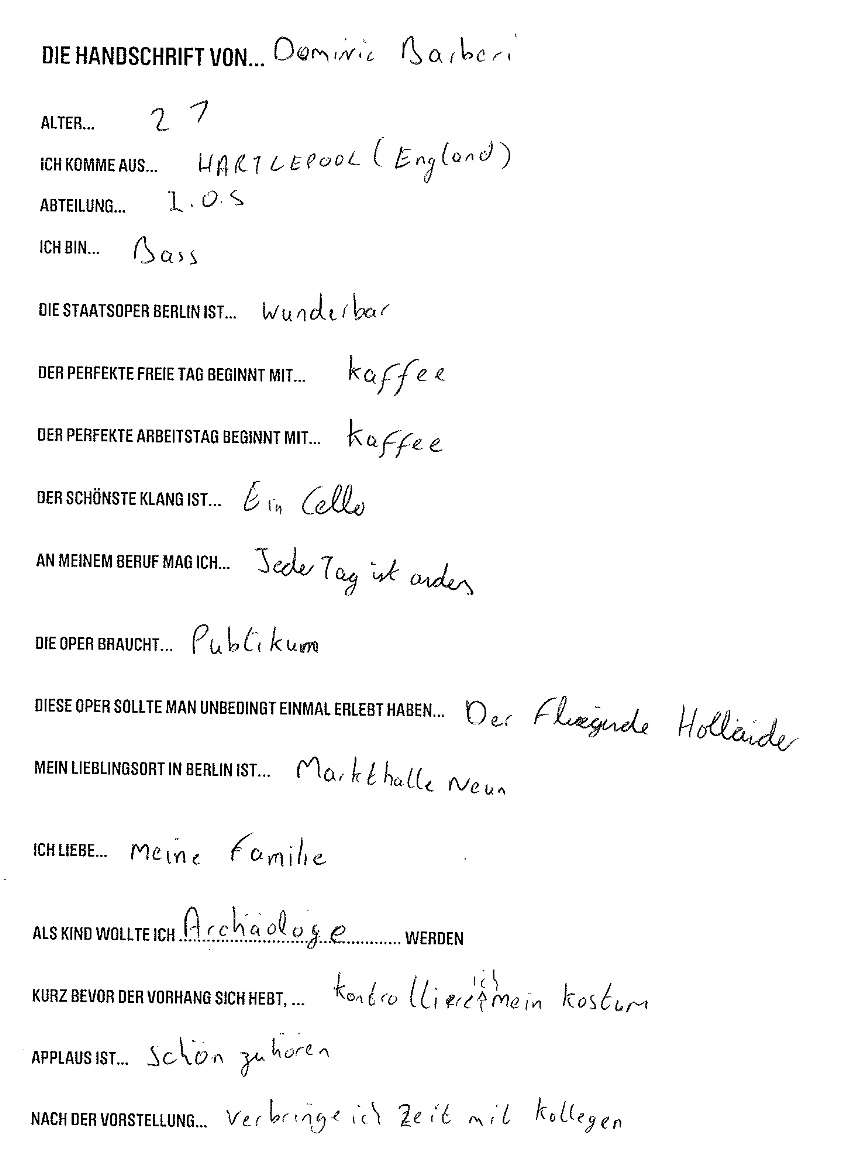 DIE HANDSCHRIFT VON... Dominic Barberi
ALTER... 27
ICH KOMME AUS... HARTLEPOOL (England)
ABTEILUNG... I.O.S
ICH BIN... Bass
DIE STAATSOPER BERLIN IST... wunderbar
DER PERFEKTE FREIE TAG BEGINNT MIT... kaffee
DER PERFEKTE ARBEITSTAG BEGINNT MIT... kaffee
DER SCHÖNSTE KLANG IST... Ein Cello
AN MEINEM BERUF MAG ICH... Jede Tag ist anders
DIE OPER BRAUCHT... Publikum
DIESE OPER SOLLTE MAN UNBEDINGT EINMAL ERLEBT HABEN... Der Fliegende Holländer
MEIN LIEBLINGSORT IN BERLIN IST... Markthalle Neun
ICH LIEBE... meine Familie
ALS KIND WOLLTE ICH Archäologe WERDEN
KURZ BEVOR DER VORHANG SICH HEBT, ... kontrolliere ich mein kostum
APPLAUS IST... schön zu hören
NACH DER VORSTELLUNG... verbringe ich Zeit mit kollegen